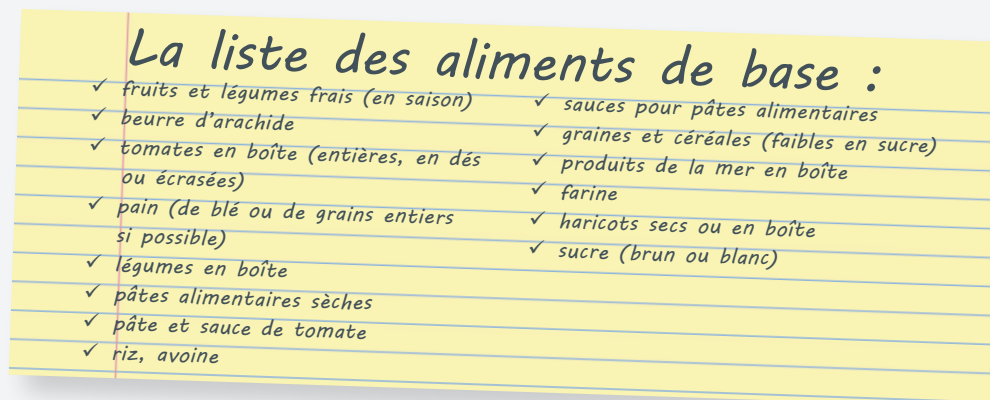 La liste des aliments de base :
✓ fruits et légumes frais (en saison)
✓ beurre d'arachide
✓ tomates en boîte (entières, en dés
ou écrasées)
✓ pain (de blé ou de grains entiers
si possible)
✓ légumes en boîte
✓ pâtes alimentaires sèches
✓ pâte et sauce de tomate
✓ riz, avoine
✓ sauces pour pâtes alimentaires
✓ graines et céréales (faibles en sucre)
✓ produits de la mer en boîte
✓ farine
✓ haricots secs ou en boîte
✓ sucre (brun ou blanc)